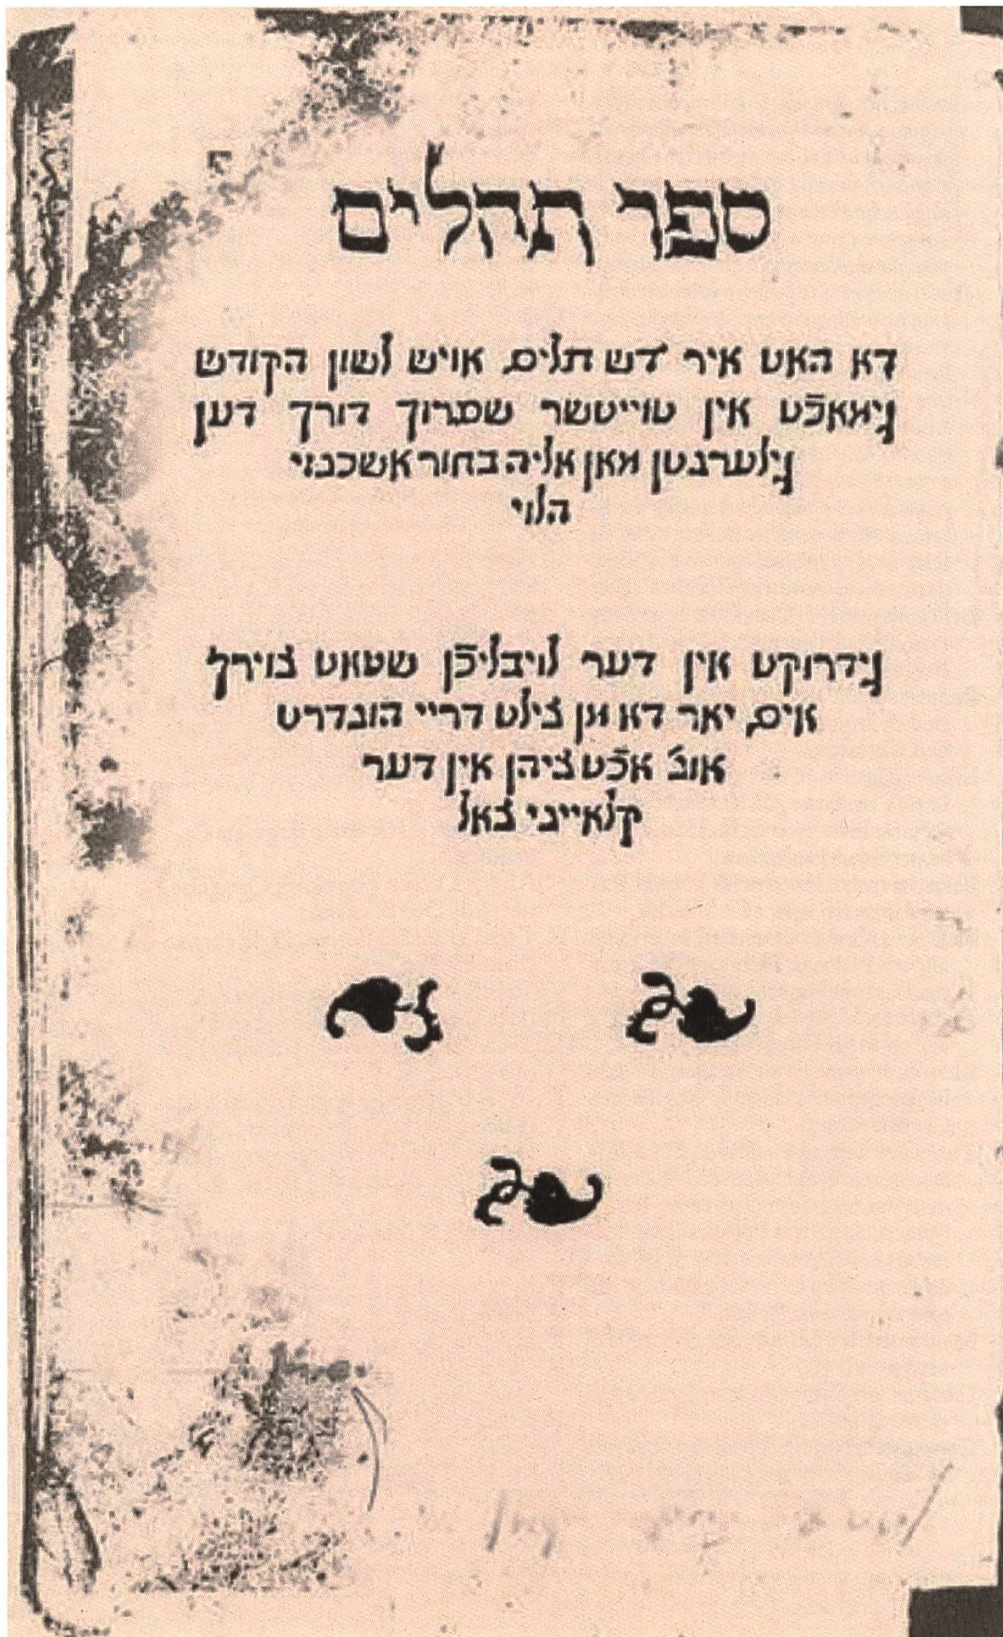 ספר תהלים
דא האט איר דש תלים אויש לשון הקודש
גימאכֿט אין טוייטשר שפרוך דורך דען
גילערנטן מאן אליה בחור אשכנזי
הלוי
גידרוקט אין דער לויבליכֿן שטאט צוירך
אים יאר דא מן צילט דריי הונדרט
אונ׳ אכֿט ציהן אין דער
קלאייני צאל